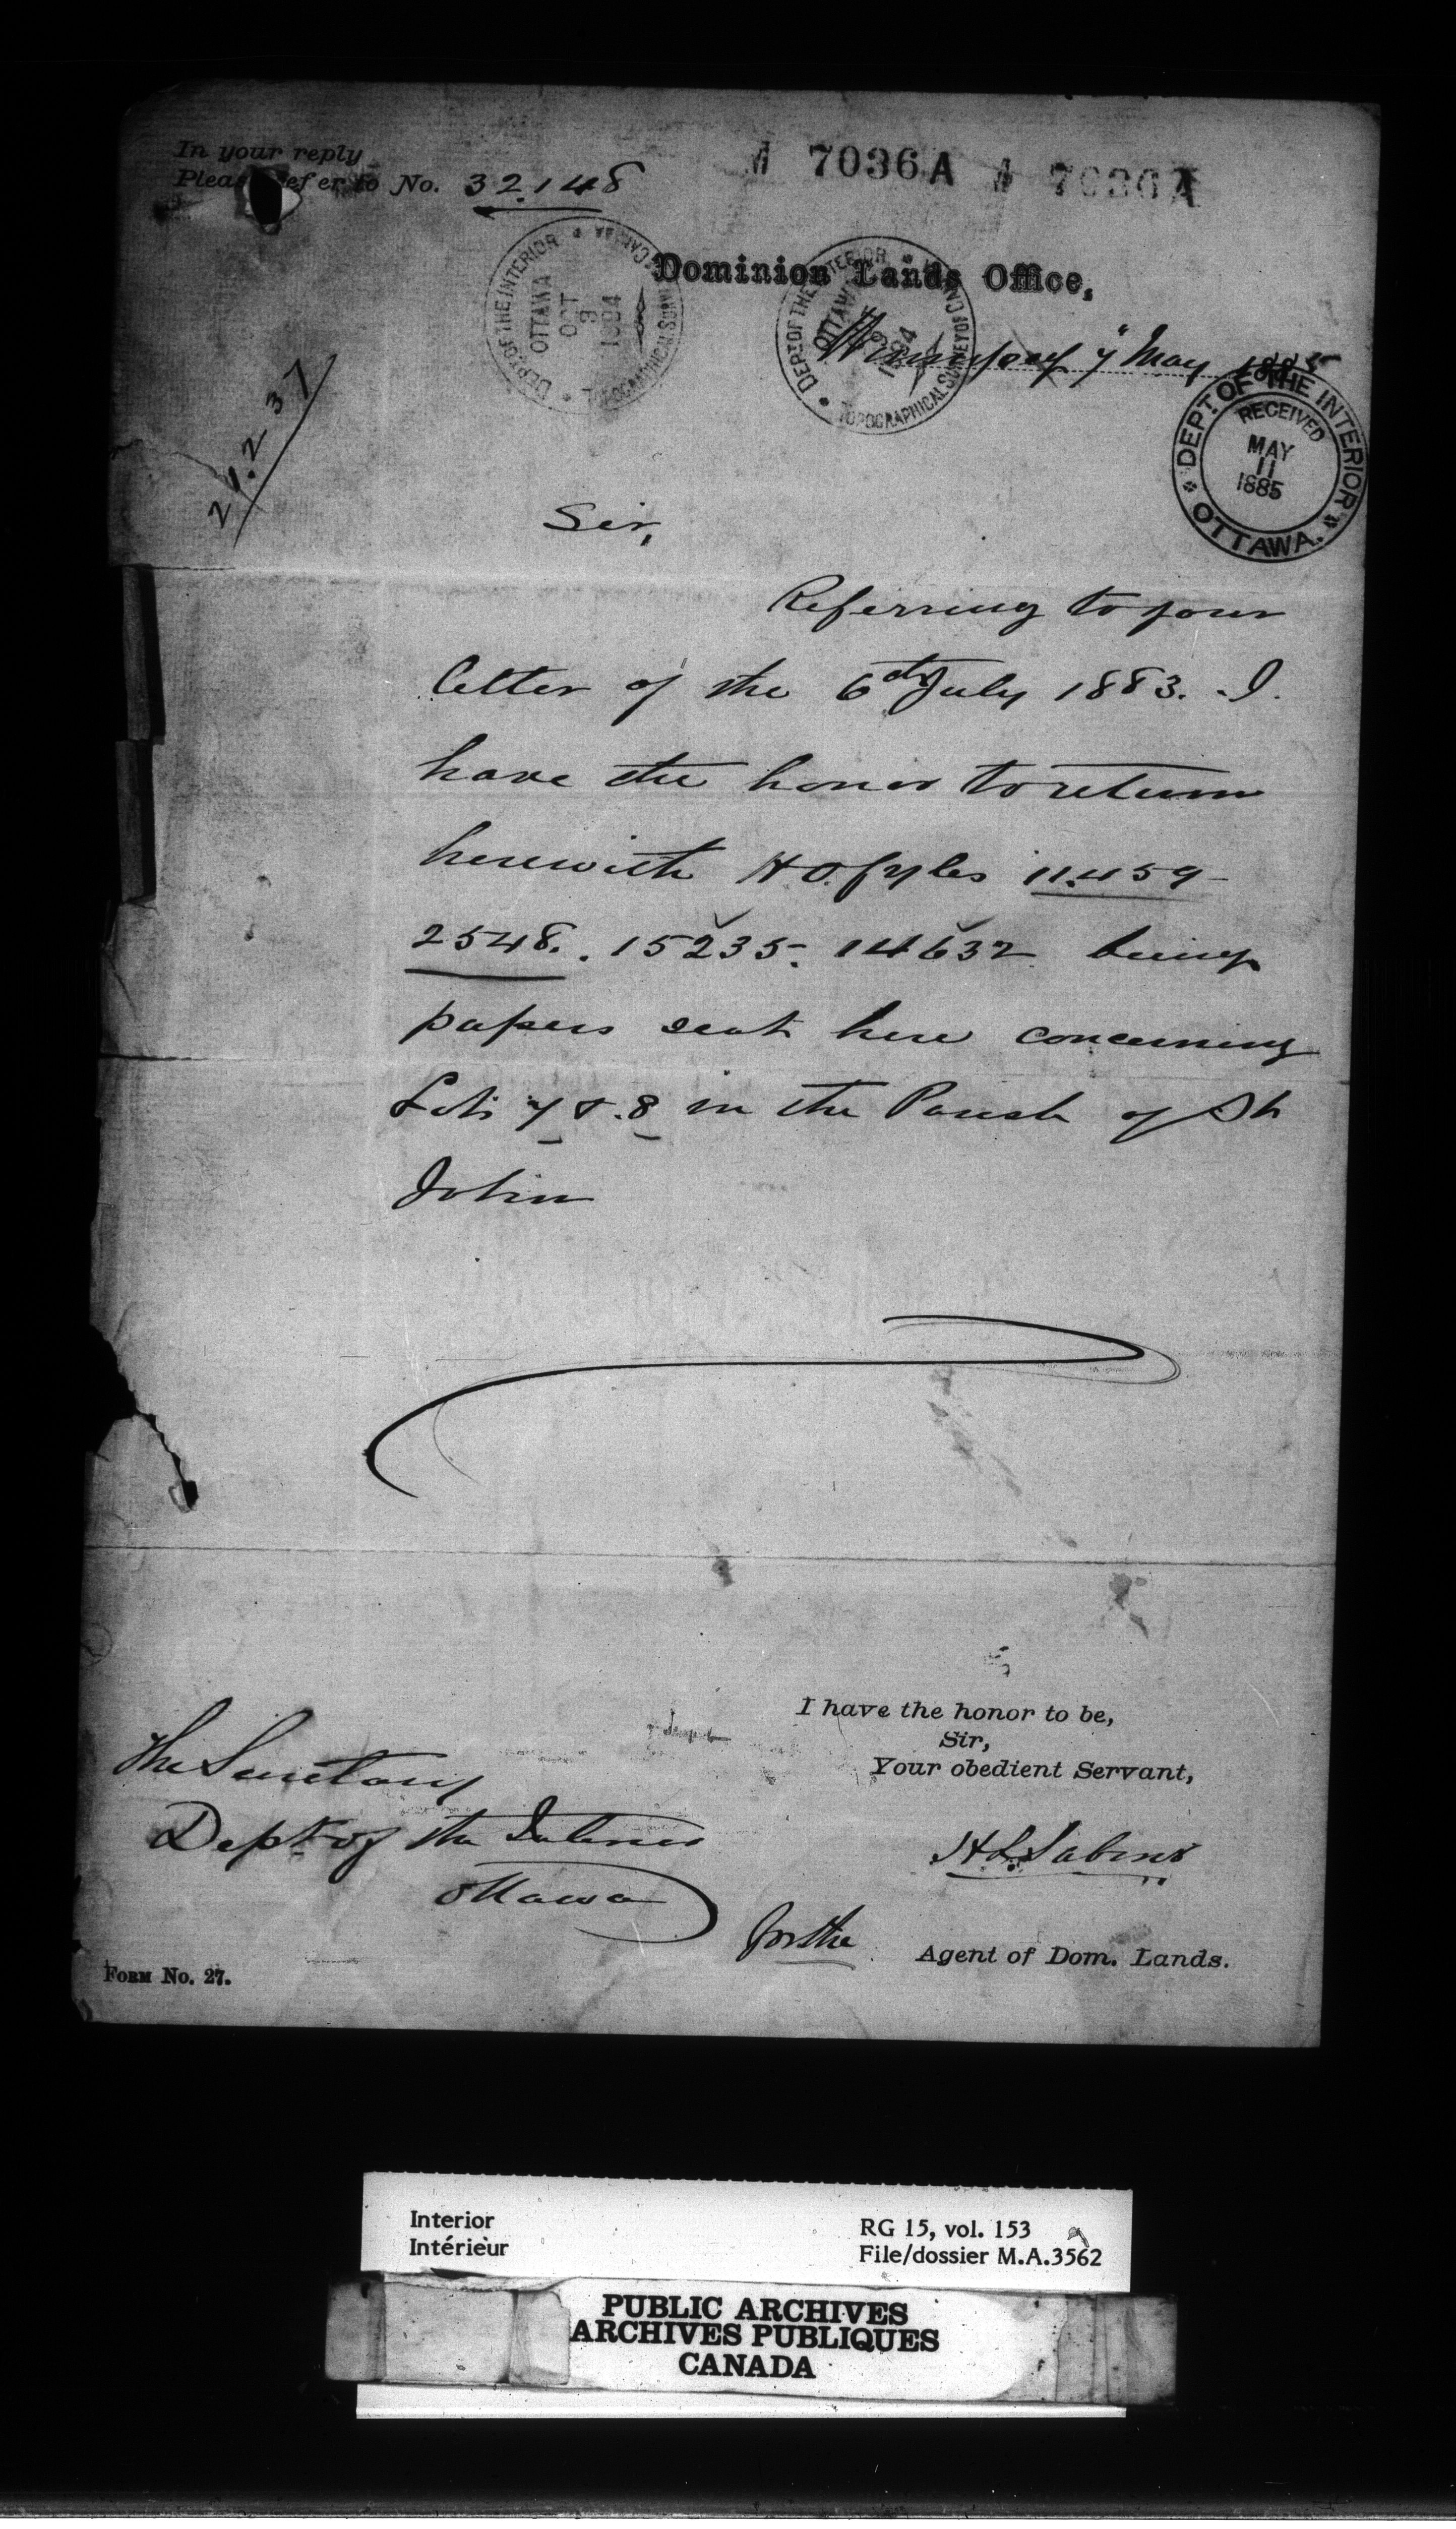 In your reply
Please refer to No. 32.148
7036A 7036A
DEPT OF THE INTERIOR
OTTAWA
OCT
3
1894
TOPOGRAPHICAL SURVEY OF CANADA
DEPT OF THE INTERIOR
OTTAWA
1894
TOPOGRAPHICAL SURVEY OF CANADA
Dominion Lands Office,
Winnipeg 7" May 1885
DEPT. OF THE INTERIOR
RECEIVED
MAY
11
1885
OTTAWA.
21.237
Sir,
Referring to your
letter of the 6th July 1883. I.
have the honor to return
herewith H.O. fyles 11.459
2548. . 15235. 14632 being
papers sent here concerning
Lots 7 & . 8 in the Parish of St
John
I have the honor to be,
Sir,
Your obedient Servant,
The Secretary
Dept of the Interior
Ottawa
H.L. Sabine
for the Agent of Dom. Lands.
Form No. 27.
Interior
Intérieur
RG 15, vol. 153
File/dossier M.A.3562
PUBLIC ARCHIVES
ARCHIVES PUBLIQUES
CANADA